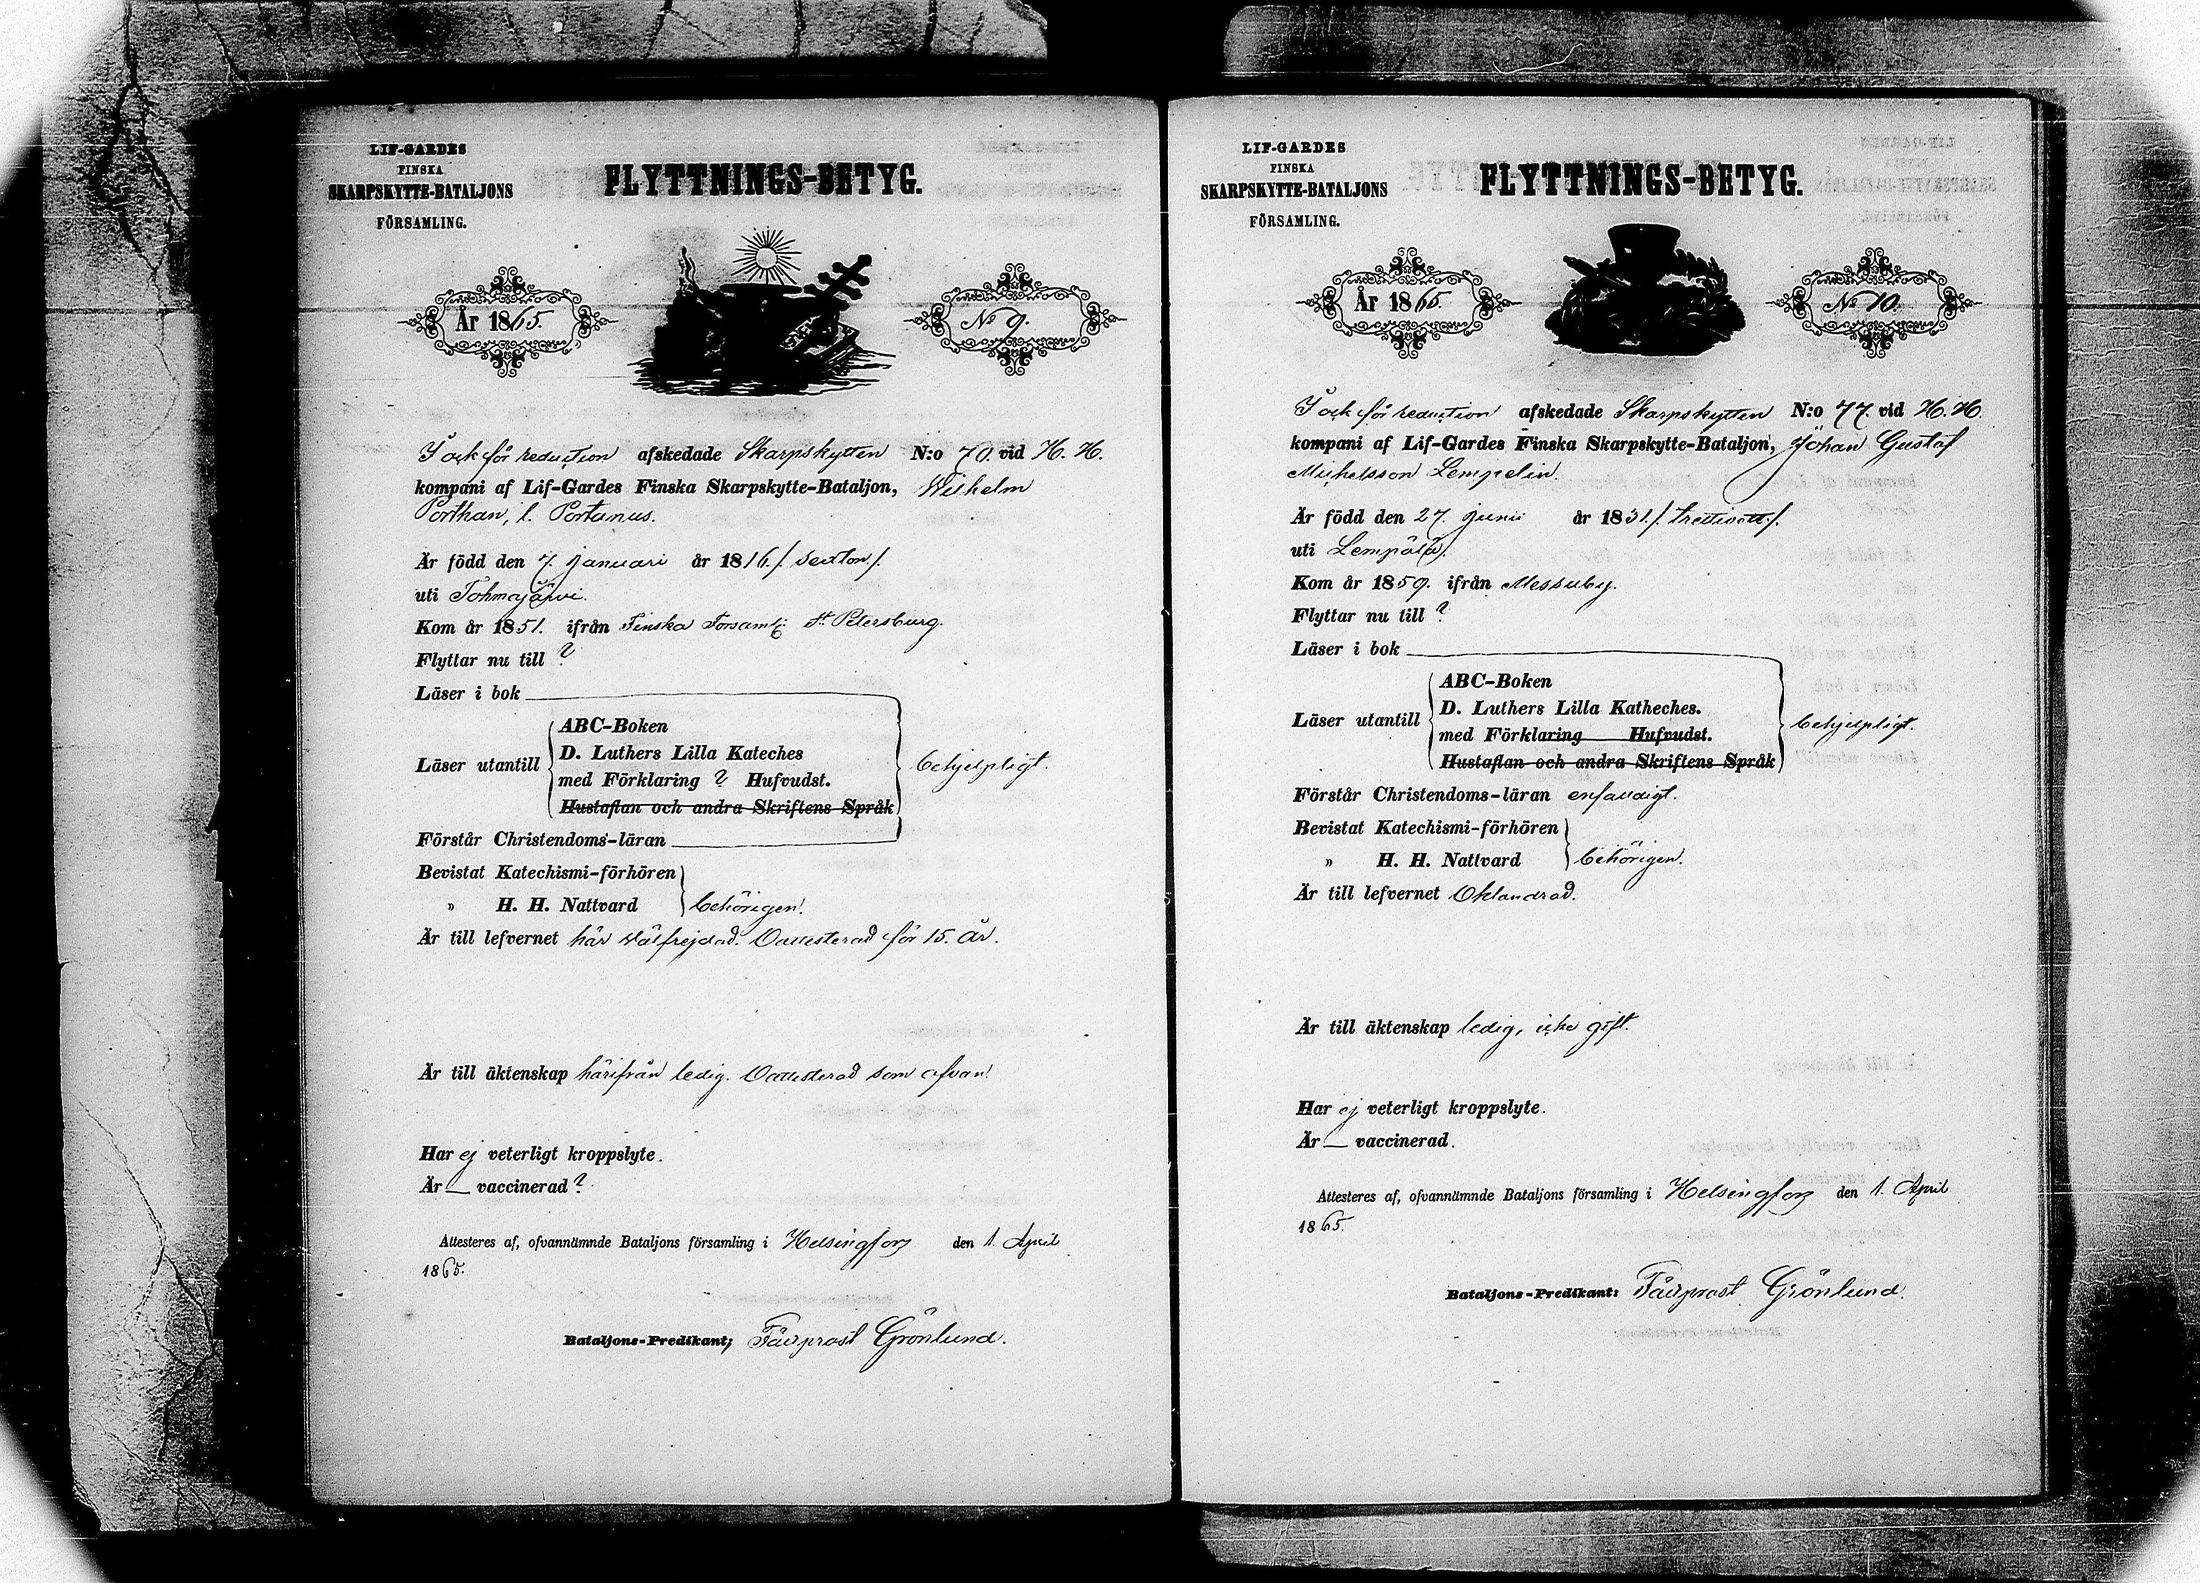 LIF-GARDES
FINSKA
SKARPSKYTTE-BATALJONS
FÖRSAMLING.
FLYTTNINGS-BETYG.
År 1865.
No 9.
I och för reduction afskedade Skarpskytten N:o 70. vid H. H.
kompani af Lif-Gardes Finska Skarpskytte-Bataljon, Wilhelm
Porthan, l. Portanus.
Är född den 7. Januari år 1816./ sexton /.
uti Tohmajärvi.
Kom år 1851. ifrån Finska Församl: St Petersburg.
Flyttar nu till ?
Läser i bok
Läser utantill
ABC-Boken
D. Luthers Lilla Kateches
med Förklaring ? Hufvudst.
Hustaflan och andra Skriftens Språk
behjelpligt.
Förstår Christendoms-läran
Bevistat Katechismi-förhören
» H. H. Nattvard
behörigen.
Är till lefvernet här välfrejdad. Oattesterad för 15. år.
Är till äktenskap härifrån ledig. Oattesterad som ofvan.
Har ej veterligt kroppslyte.
Är — vaccinerad ?
Attesteres af, ofvannämnde Bataljons församling i Helsingfors den 1. April
1865.
Bataljons-Predikant; Fältprost Grönlund.
LIF-GARDES
FINSKA
SKARPSKYTTE-BATALJONS
FÖRSAMLING.
FLYTTNINGS-BETYG.
År 1865.
No 10.
I och för reduction afskedade Skarpskytten N:o 77. vid H. H.
kompani af Lif-Gardes Finska Skarpskytte-Bataljon, Johan Gustaf
Michelsson Lempelin.
Är född den 27. Junii år 1831./ trettioett /.
uti Lempälä.
Kom år 1859. ifrån Messuby.
Flyttar nu till ?
Läser i bok
Läser utantill
ABC-Boken
D. Luthers Lilla Katheches.
med Förklaring Hufvudst.
Hustaflan och andra Skriftens Språk
behjelpligt.
Förstår Christendoms-läran enfaldigt.
Bevistat Katechismi-förhören
» H. H. Nattvard
behörigen.
Är till lefvernet Oklandrad.
Är till äktenskap ledig, icke gift.
Har ej veterligt kroppslyte.
Är — vaccinerad.
Attesteres af, ofvannämnde Bataljons församling i Helsingfors den 1. April
1865.
Bataljons-Predikant: Fältprost Grönlund.